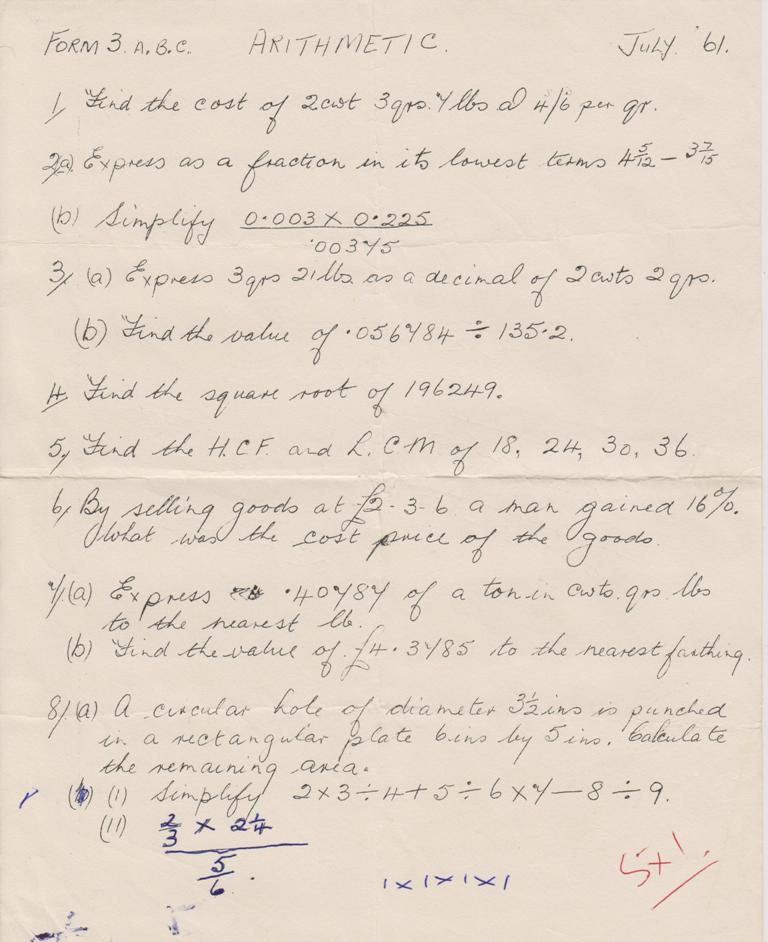 FORM 3. A.B.C. ARITHMETIC. JULY. '61.
1, Find the cost of 2cwt 3qrs. 7lbs @ 4/6 per qr.
2,a) Express as a fraction in its lowest terms 4 5/12 – 3 7/15
(b) Simplify 0·003 X 0·225
·00375
3, (a) Express 3qrs 21lbs as a decimal of 2cwts 2qrs.
(b) Find the value of ·056784 ÷ 135·2.
4, Find the square root of 196249.
5, Find the H.C.F. and L.C.M of 18, 24, 30, 36.
6, By selling goods at £2-3-6 a man gained 16%.
What was the cost price of the goods.
7,(a) Express ·40787 of a ton in cwts. qrs lbs
to the nearest lb.
(b) Find the value of £4·3785 to the nearest farthing.
8,(a) A circular hole of diameter 3½ins is punched
in a rectangular plate 6ins by 5ins. Calculate
the remaining area.
(b) (1) Simplify 2x3÷4+5÷6x7—8÷9.
(11) 2/3 x 2¼
5/6.
1x1x1x1
5+1.